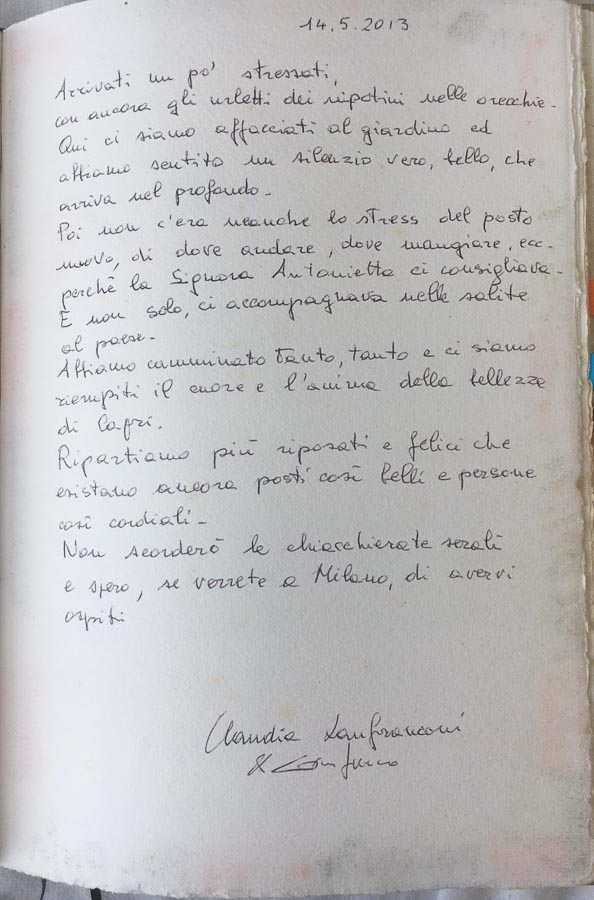 14.5.2013
Arrivati un po' stressati,
con ancora gli urletti dei nipotini nelle orecchie.
Qui ci siamo affacciati al giardino ed
abbiamo sentito un silenzio vero, bello, che
arriva nel profondo.
Poi non c'era neanche lo stress del posto
nuovo, di dove andare, dove mangiare, ecc.
perchè la Signora Antonietta ci consigliava.
E non solo, ci accompagnava nelle salite
al paese.
Abbiamo camminato tanto, tanto e ci siamo
riempiti il cuore e l'anima della bellezza
di Capri.
Ripartiamo più riposati e felici che
esistano ancora posti così belli e persone
così cordiali.
Non scorderò le chiacchierate serali
e spero, se verrete a Milano, di avervi
ospiti
Claudia Lanfranconi
&